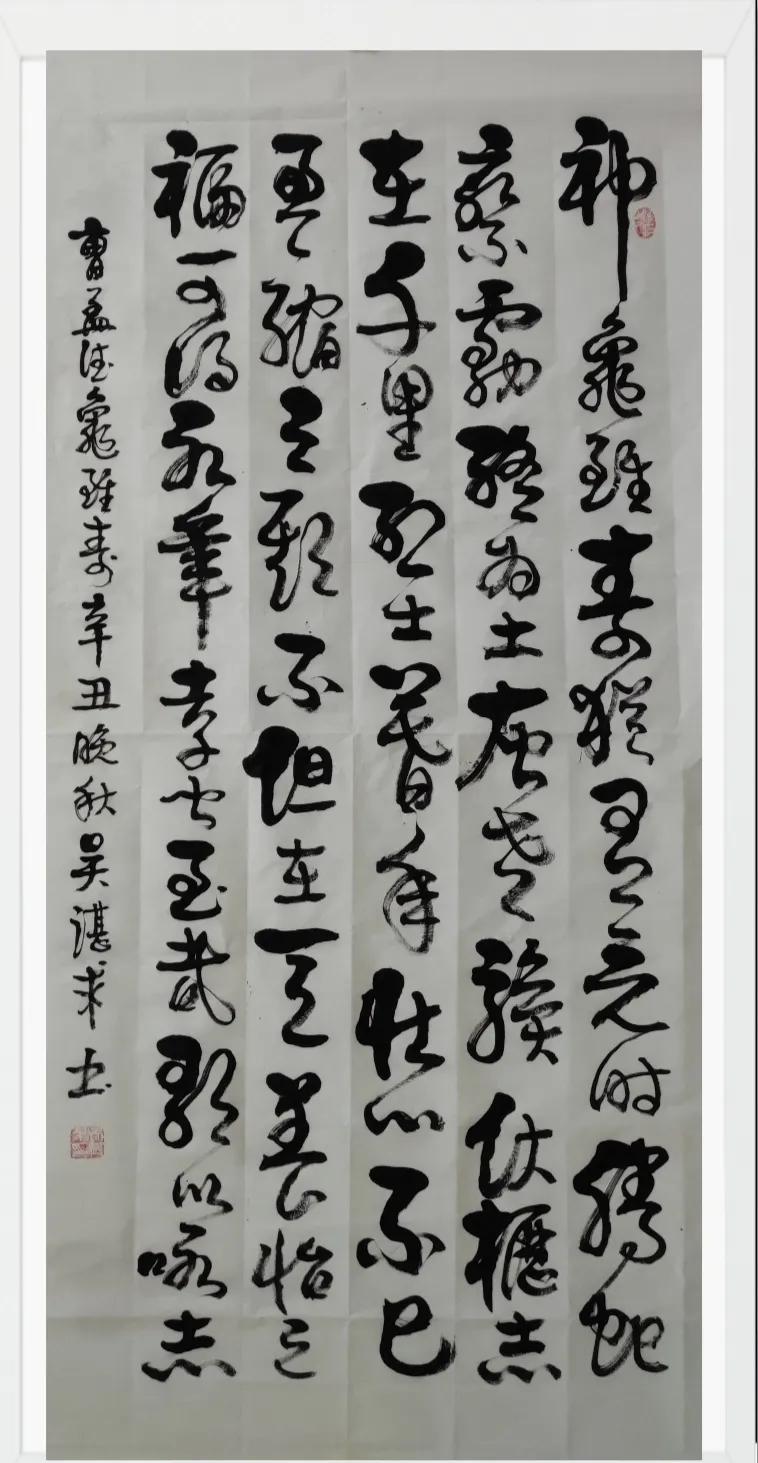 神龜雖壽猶有竟時騰蛇
乘霧終為土灰老驥伏櫪志
在千里烈士暮年壯心不已
盈縮之期不但在天養怡之
福可得永年幸甚至哉歌以咏志
曹孟德龜雖壽辛丑晚秋吳湛求書